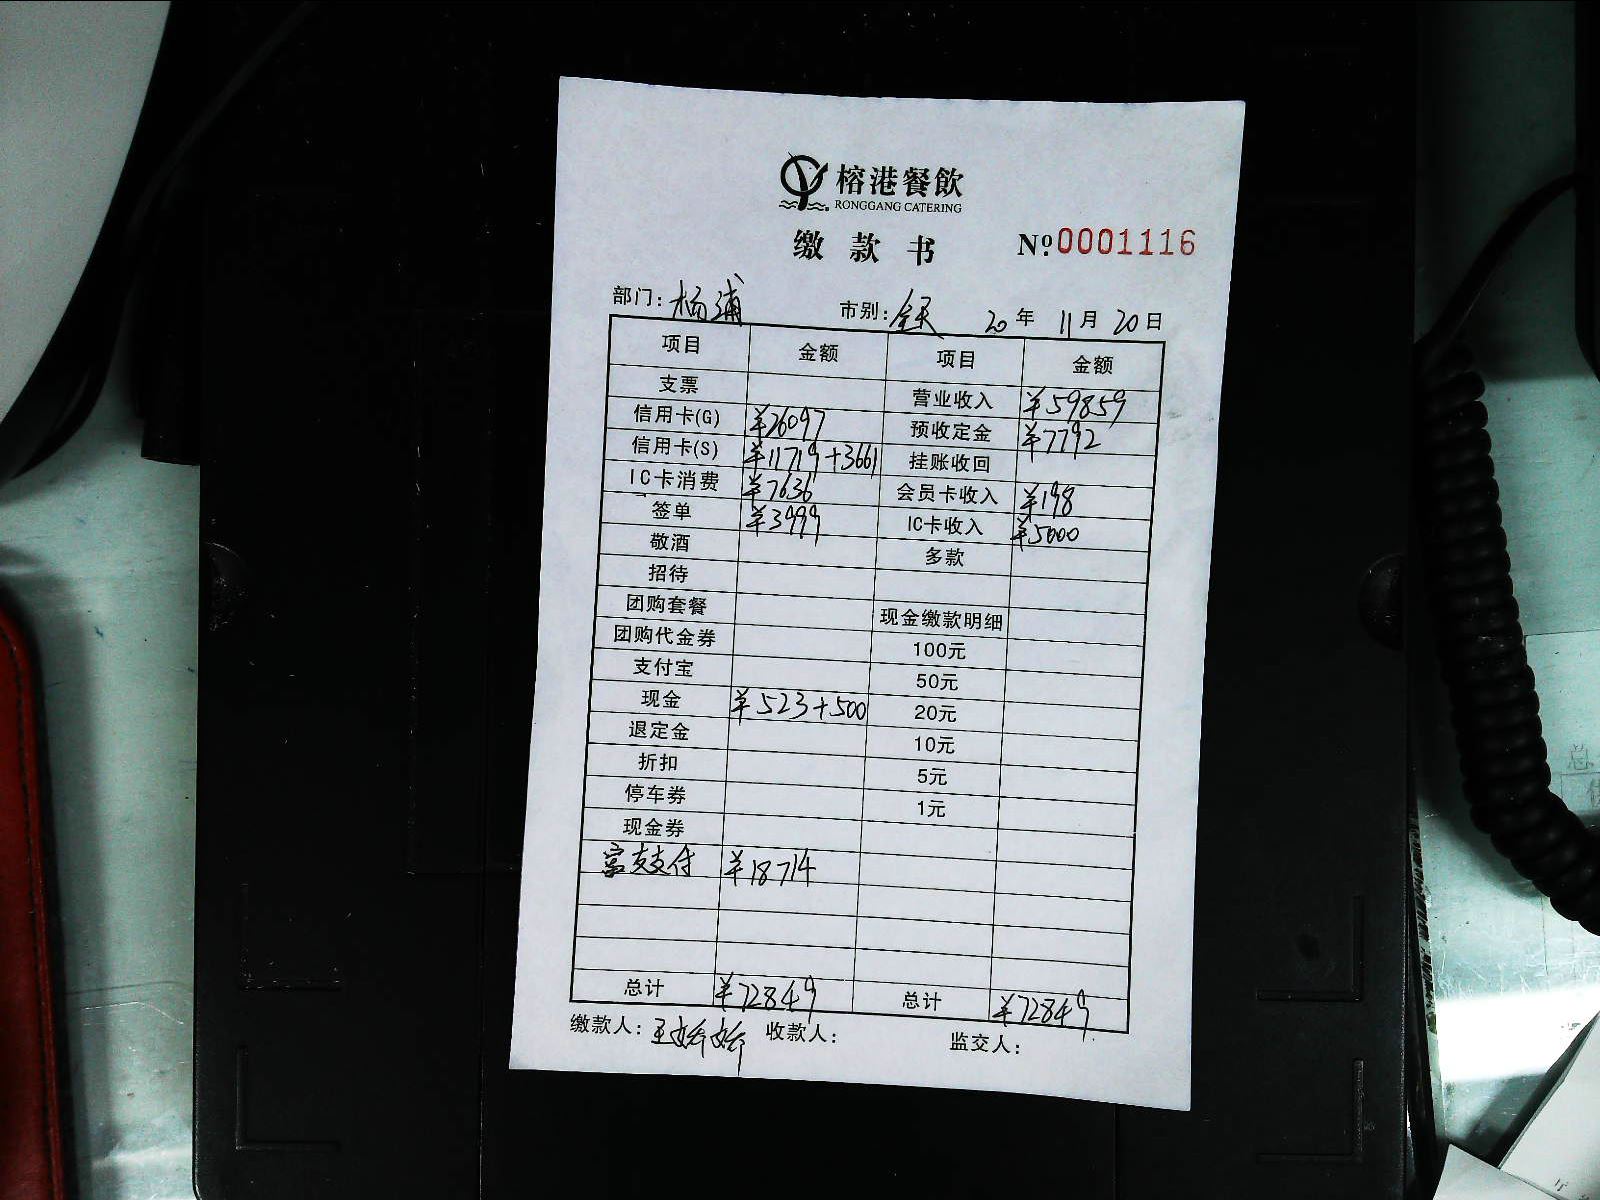 榕港餐飲
RONGGANG CATERING
缴款书 №0001116
部门：杨浦 市别：全天 20年 11月 20日
项目 金额 项目 金额
支票 营业收入 ¥59859
信用卡(G) ¥26097 预收定金 ¥7792
信用卡(S) ¥11719+3661 挂账收回
IC卡消费 ¥7636 会员卡收入 ¥198
签单 ¥3999 IC卡收入 ¥5000
敬酒 多款
招待
团购套餐 现金缴款明细
团购代金券 100元
支付宝 50元
现金 ¥523+500 20元
退定金 10元
折扣 5元
停车券 1元
现金券
富友支付 ¥18714
总计 ¥72849 总计 ¥72849
缴款人：王娇娇 收款人： 监交人：